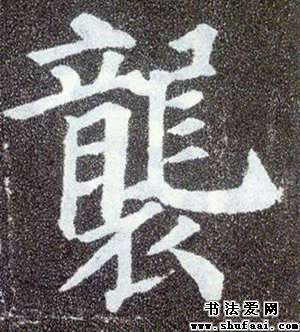 襲
书法爱网
www.shufaai.com